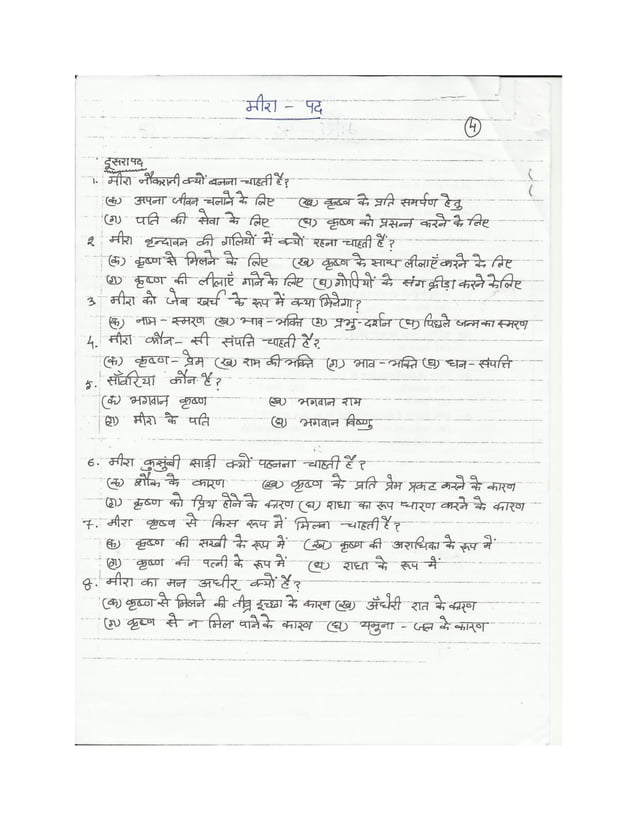 मीरा - पद
4
दूसरा पद
1. मीरा नौकरानी क्यों बनना चाहती है?
(क) अपना जीवन चलाने के लिए (ख) कृष्ण के प्रति समर्पण हेतु
(ग) पति की सेवा के लिए (घ) कृष्ण को प्रसन्न करने के लिए
2 मीरा वृन्दावन की गलियों में क्यों रहना चाहती हैं?
(क) कृष्ण से मिलने के लिए (ख) कृष्ण के साथ लीलाएँ करने के लिए
(ग) कृष्ण की लीलाएँ गाने के लिए (घ) गोपियों के संग क्रीड़ा करने के लिए
3 मीरा को जेब खर्च के रूप में क्या मिलेगा?
(क) नाम - स्मरण (ख) भाव - भक्ति (ग) प्रभु - दर्शन (घ) पिछले जन्म का स्मरण
4. मीरा कौन - सी संपत्ति चाहती है?
(क) कृष्ण - प्रेम (ख) राम की भक्ति (ग) भाव - भक्ति (घ) धन - संपत्ति
5. साँवरिया कौन है?
(क) भगवान कृष्ण (ख) भगवान राम
(ग) मीरा के पति (घ) भगवान विष्णु
6. मीरा कुसुंबी साड़ी क्यों पहनना चाहती है?
(क) शौक के कारण (ख) कृष्ण के प्रति प्रेम प्रकट करने के कारण
(ग) कृष्ण को प्रिय होने के कारण (घ) राधा का रूप धारण करने के कारण
7. मीरा कृष्ण से किस रूप में मिलना चाहती है?
(क) कृष्ण की सखी के रूप में (ख) कृष्ण की अराधिका के रूप में
(ग) कृष्ण की पत्नी के रूप में (घ) राधा के रूप में
8. मीरा का मन अधीर क्यों है?
(क) कृष्ण से मिलने की तीव्र इच्छा के कारण (ख) अँधेरी रात के कारण
(ग) कृष्ण से न मिल पाने के कारण (घ) यमुना - जल के कारण